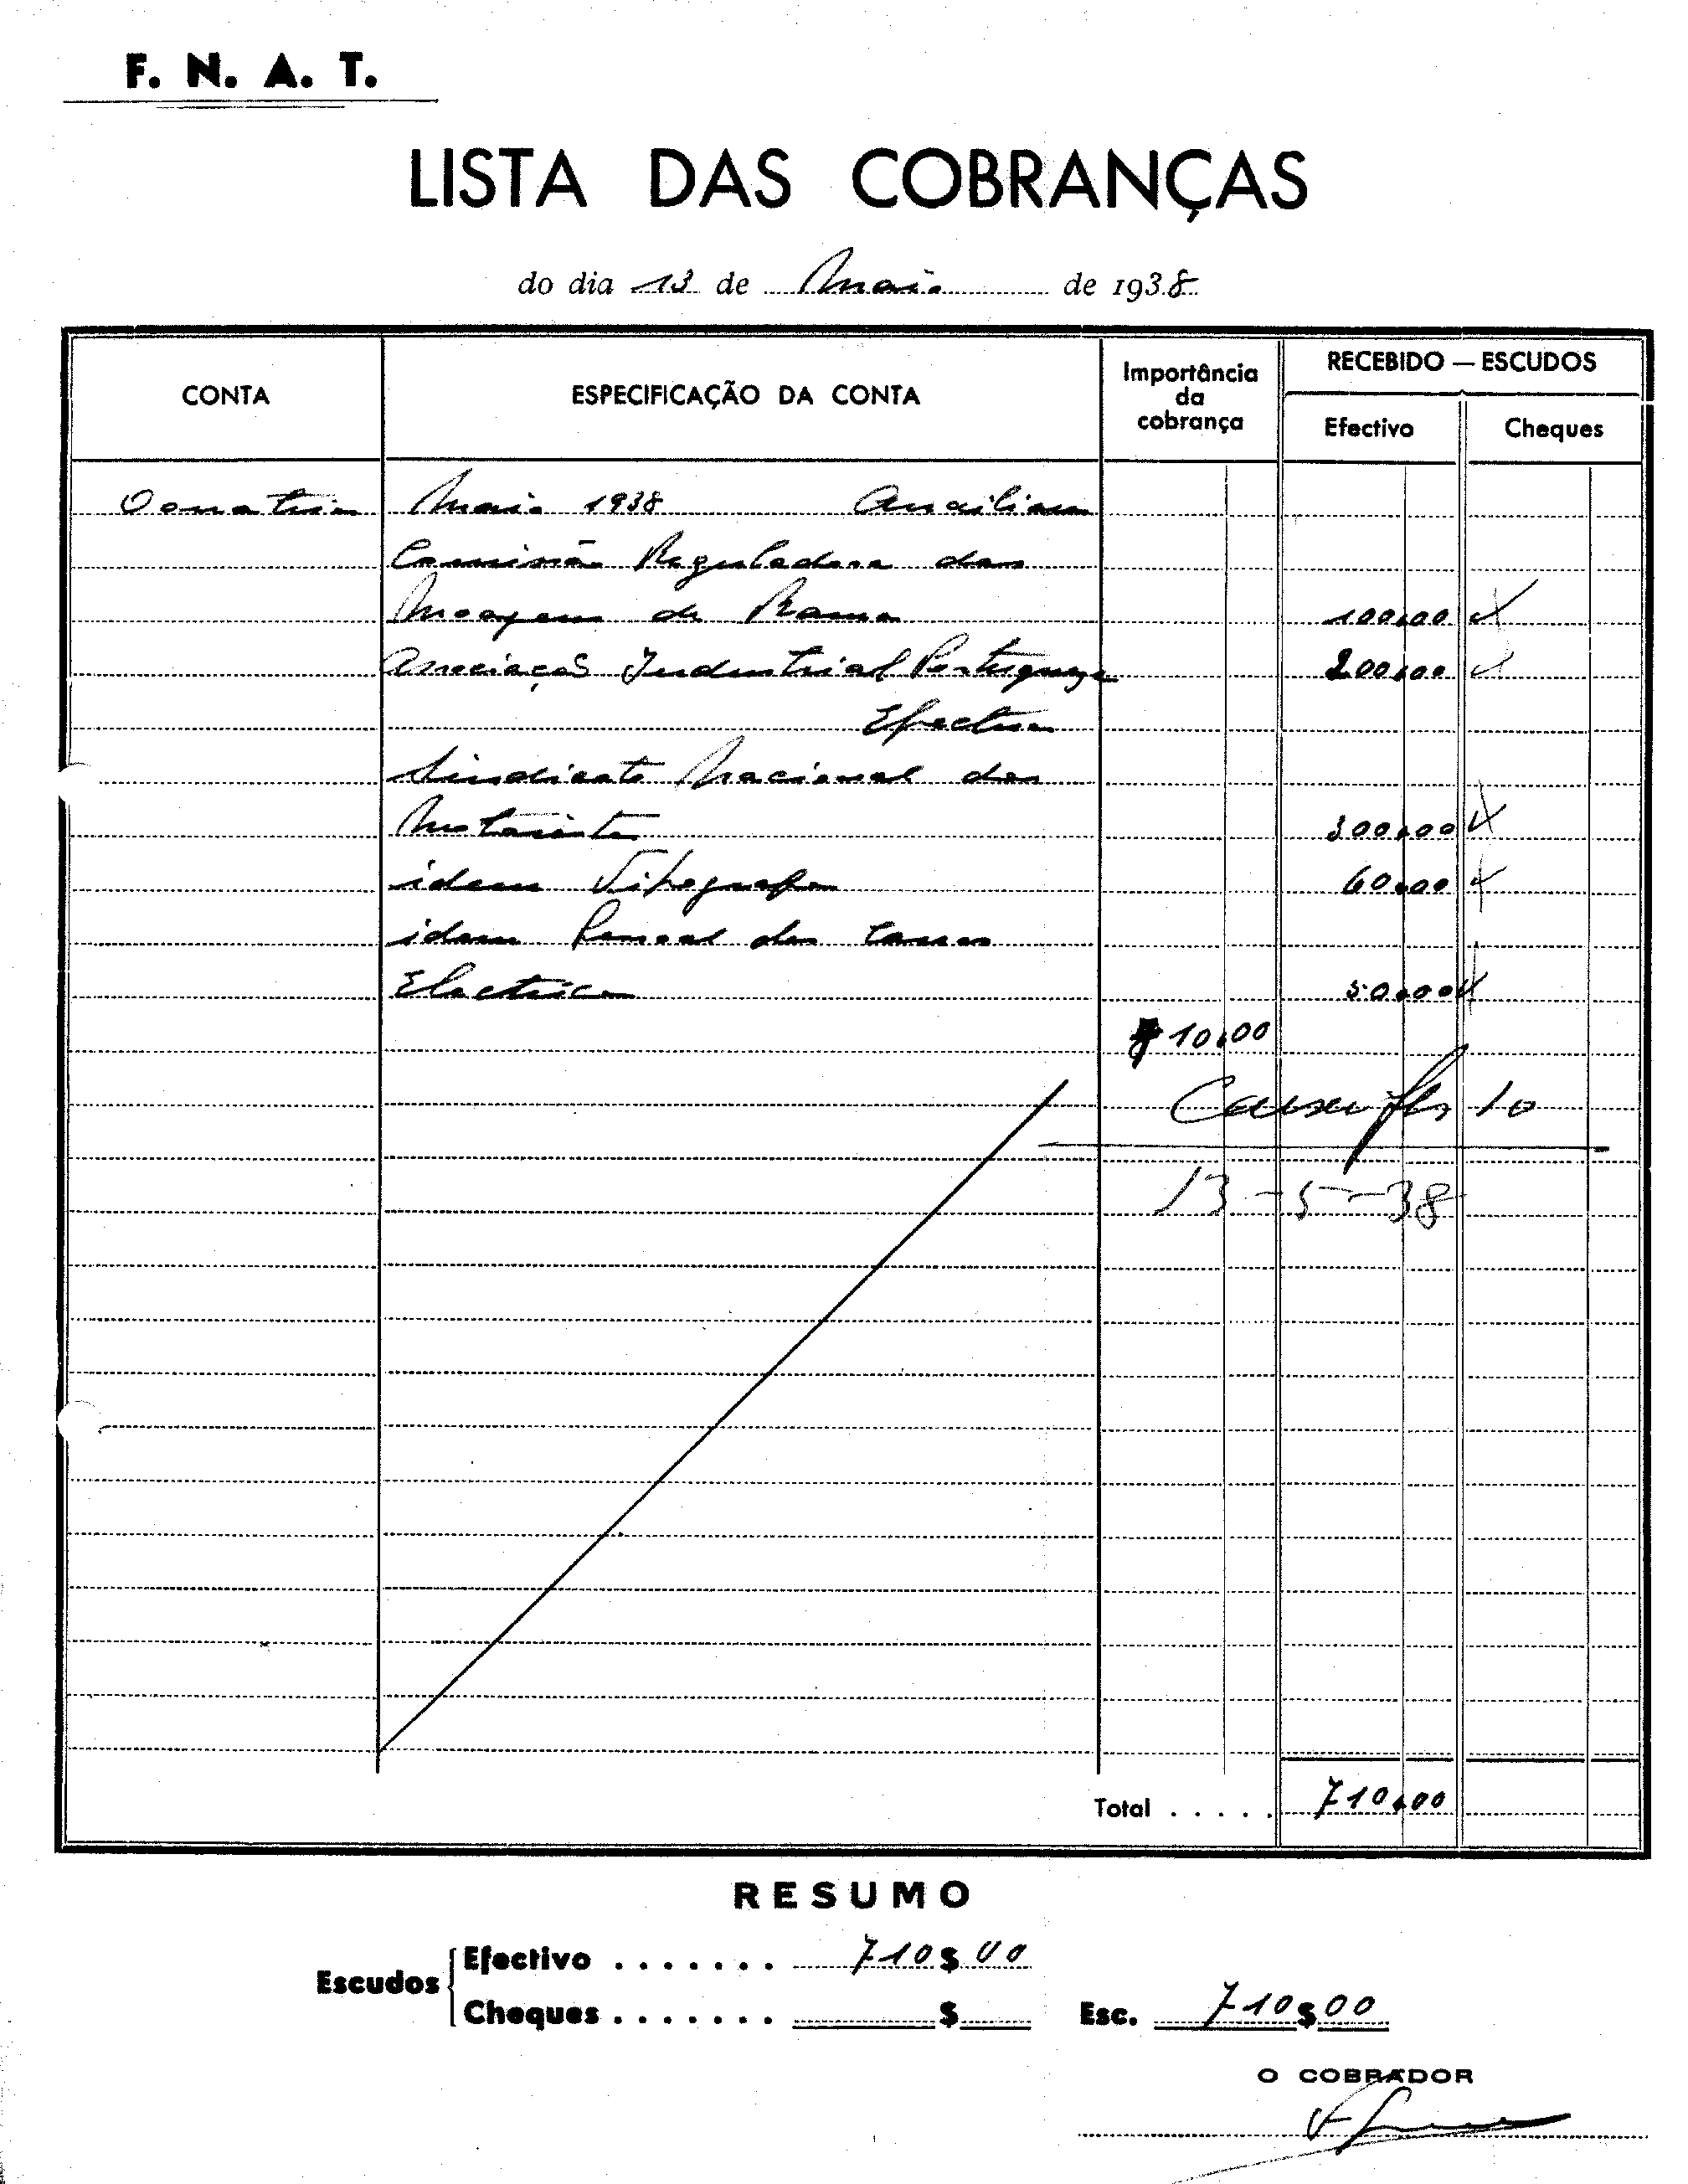 F. N. A. T.
LISTA DAS COBRANÇAS
do dia 13 de Maio de 1938
CONTA
ESPECIFICAÇÃO DA CONTA
Importância
da
cobrança
RECEBIDO — ESCUDOS
Efectivo
Cheques
Maio 1938 Auxiliares
Comissão Reguladora das
Moagens de Ramas 100,00
Associação Industrial Portugueza 200,00
Efectivos
Sindicato Nacional dos
Motoristas 300,00
idem Tipografos 60,00
idem Pessoal dos Carros
Electricos 50,00
710,00
13-5-38
Total . . . . . 710,00
RESUMO
Escudos
Efectivo . . . . . . . 710$00
Cheques . . . . . . . $
Esc. 710$00
O COBRADOR